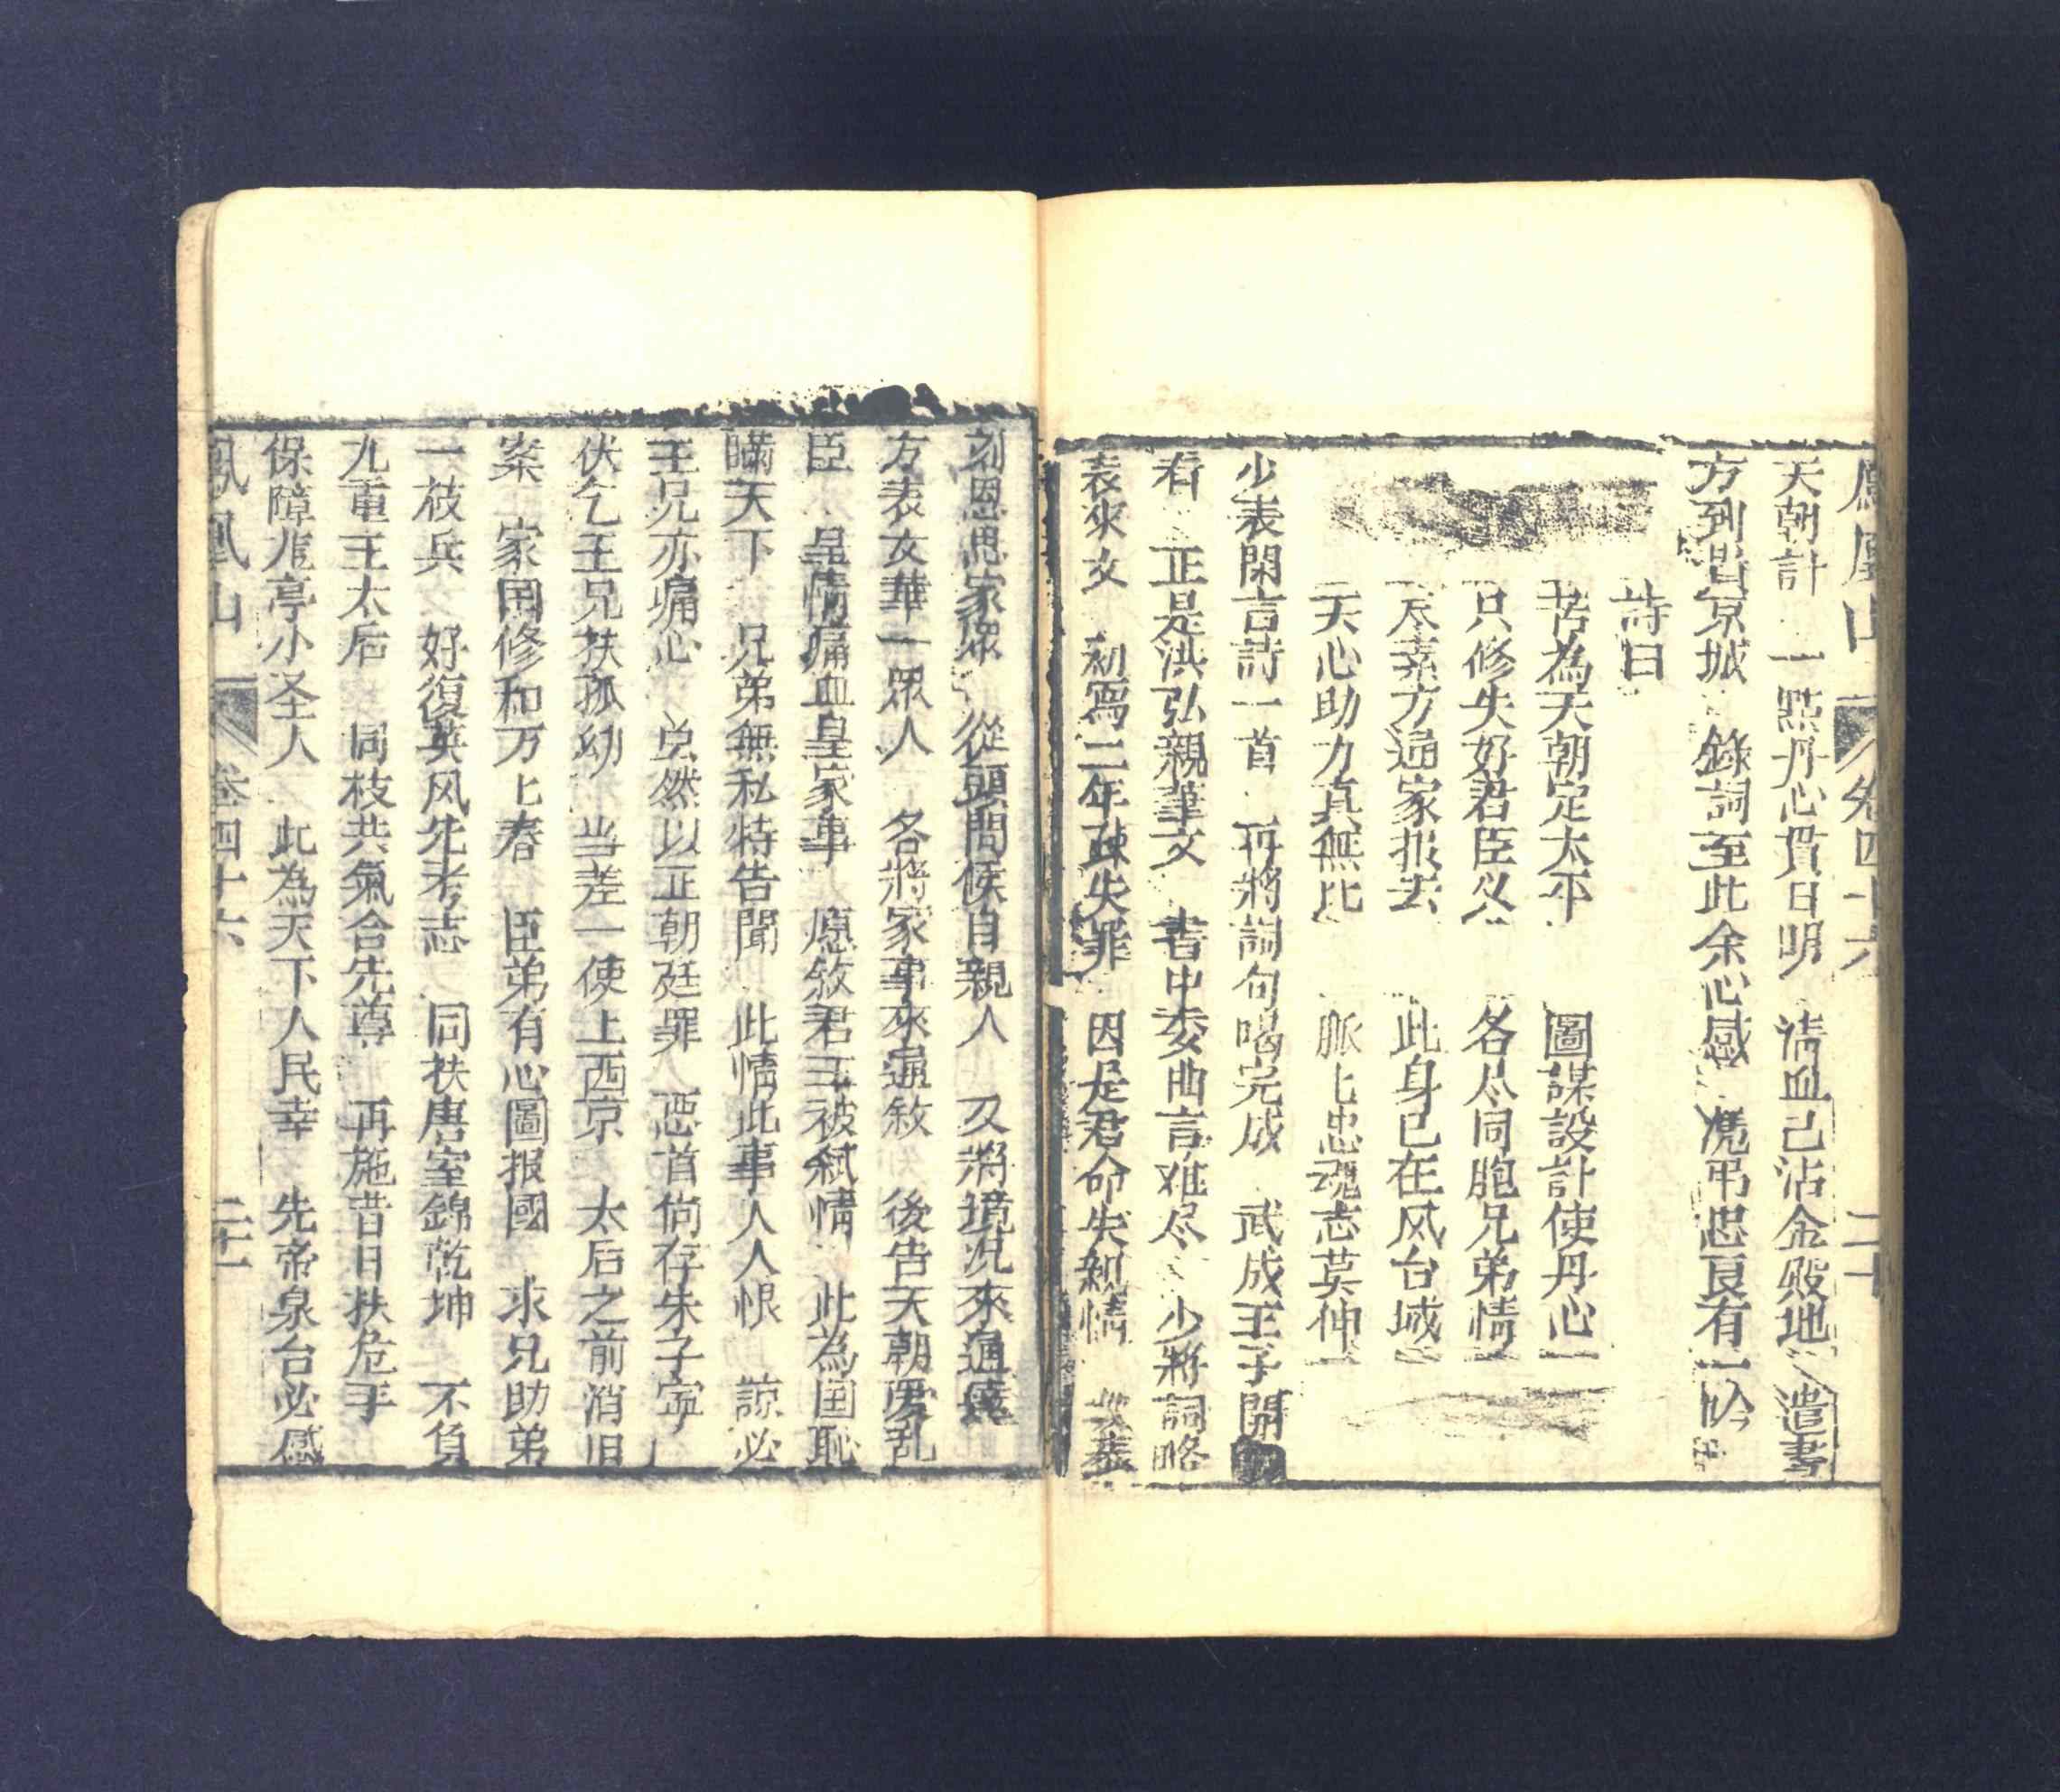 鳳凰山 卷四十六 二十
天朝計 一點丹心貫日明 清血已沾金殿地 遣書
方到 京城 錄詞至此余心感 凴吊忠良有一吟
詩曰
苦為天朝定太平 圖謀設計使丹心
只修失好君臣 各尽同胞兄弟情
尽素方通家报去 此身已在风台城
天心助力真無比 脈上忠魂志莫伸
少表閑言詩一首 再將詞句唱完成 武成王子開
看 正是洪弘親筆文 書中委曲言难尽 少將詞略
表來文 初寫二年疎失罪 因是君命失親情
刻恩思家眾 從頭問候自親人 又將境况來通
方表女華一眾人 各將家事來通敘 後告天朝 乱
臣 皇情痛血皇家事 愿敘君王被弑情 此為国恥
瞞天下 兄弟無私特告聞 此情此事人人恨 諒必
王兄亦痛心 兑然以正朝廷罪 恶首尙存朱子寜
伏乞王兄扶孤幼 当差一使上西京 太后之前消旧
案 家国修和万上春 臣弟有心圖报國 求兄助弟
一枝兵 好復英风先考志 同扶唐室錦乾坤 不負
九重王太后 同枝共氣合先尊 再施昔日扶危手
保障 亭小圣人 此為天下人民幸 先帝泉台必感
鳳凰山 卷四十六 二十一